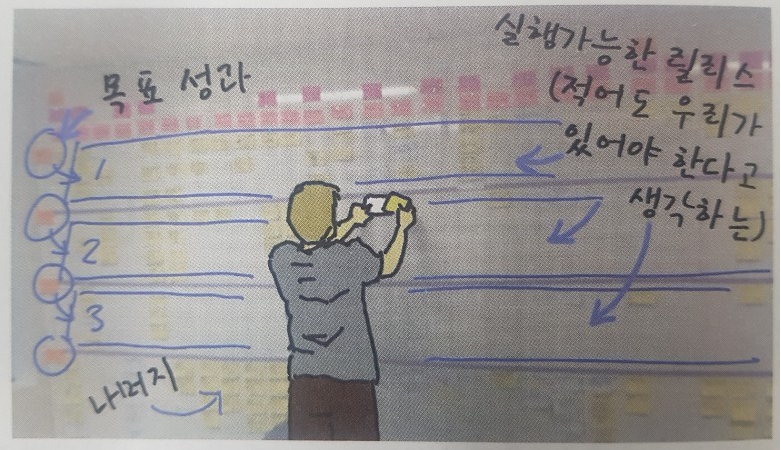 목표 성과
실행가능한 릴리스
(적어도 우리가
있어야 한다고
생각하는)
1
2
3
나머지